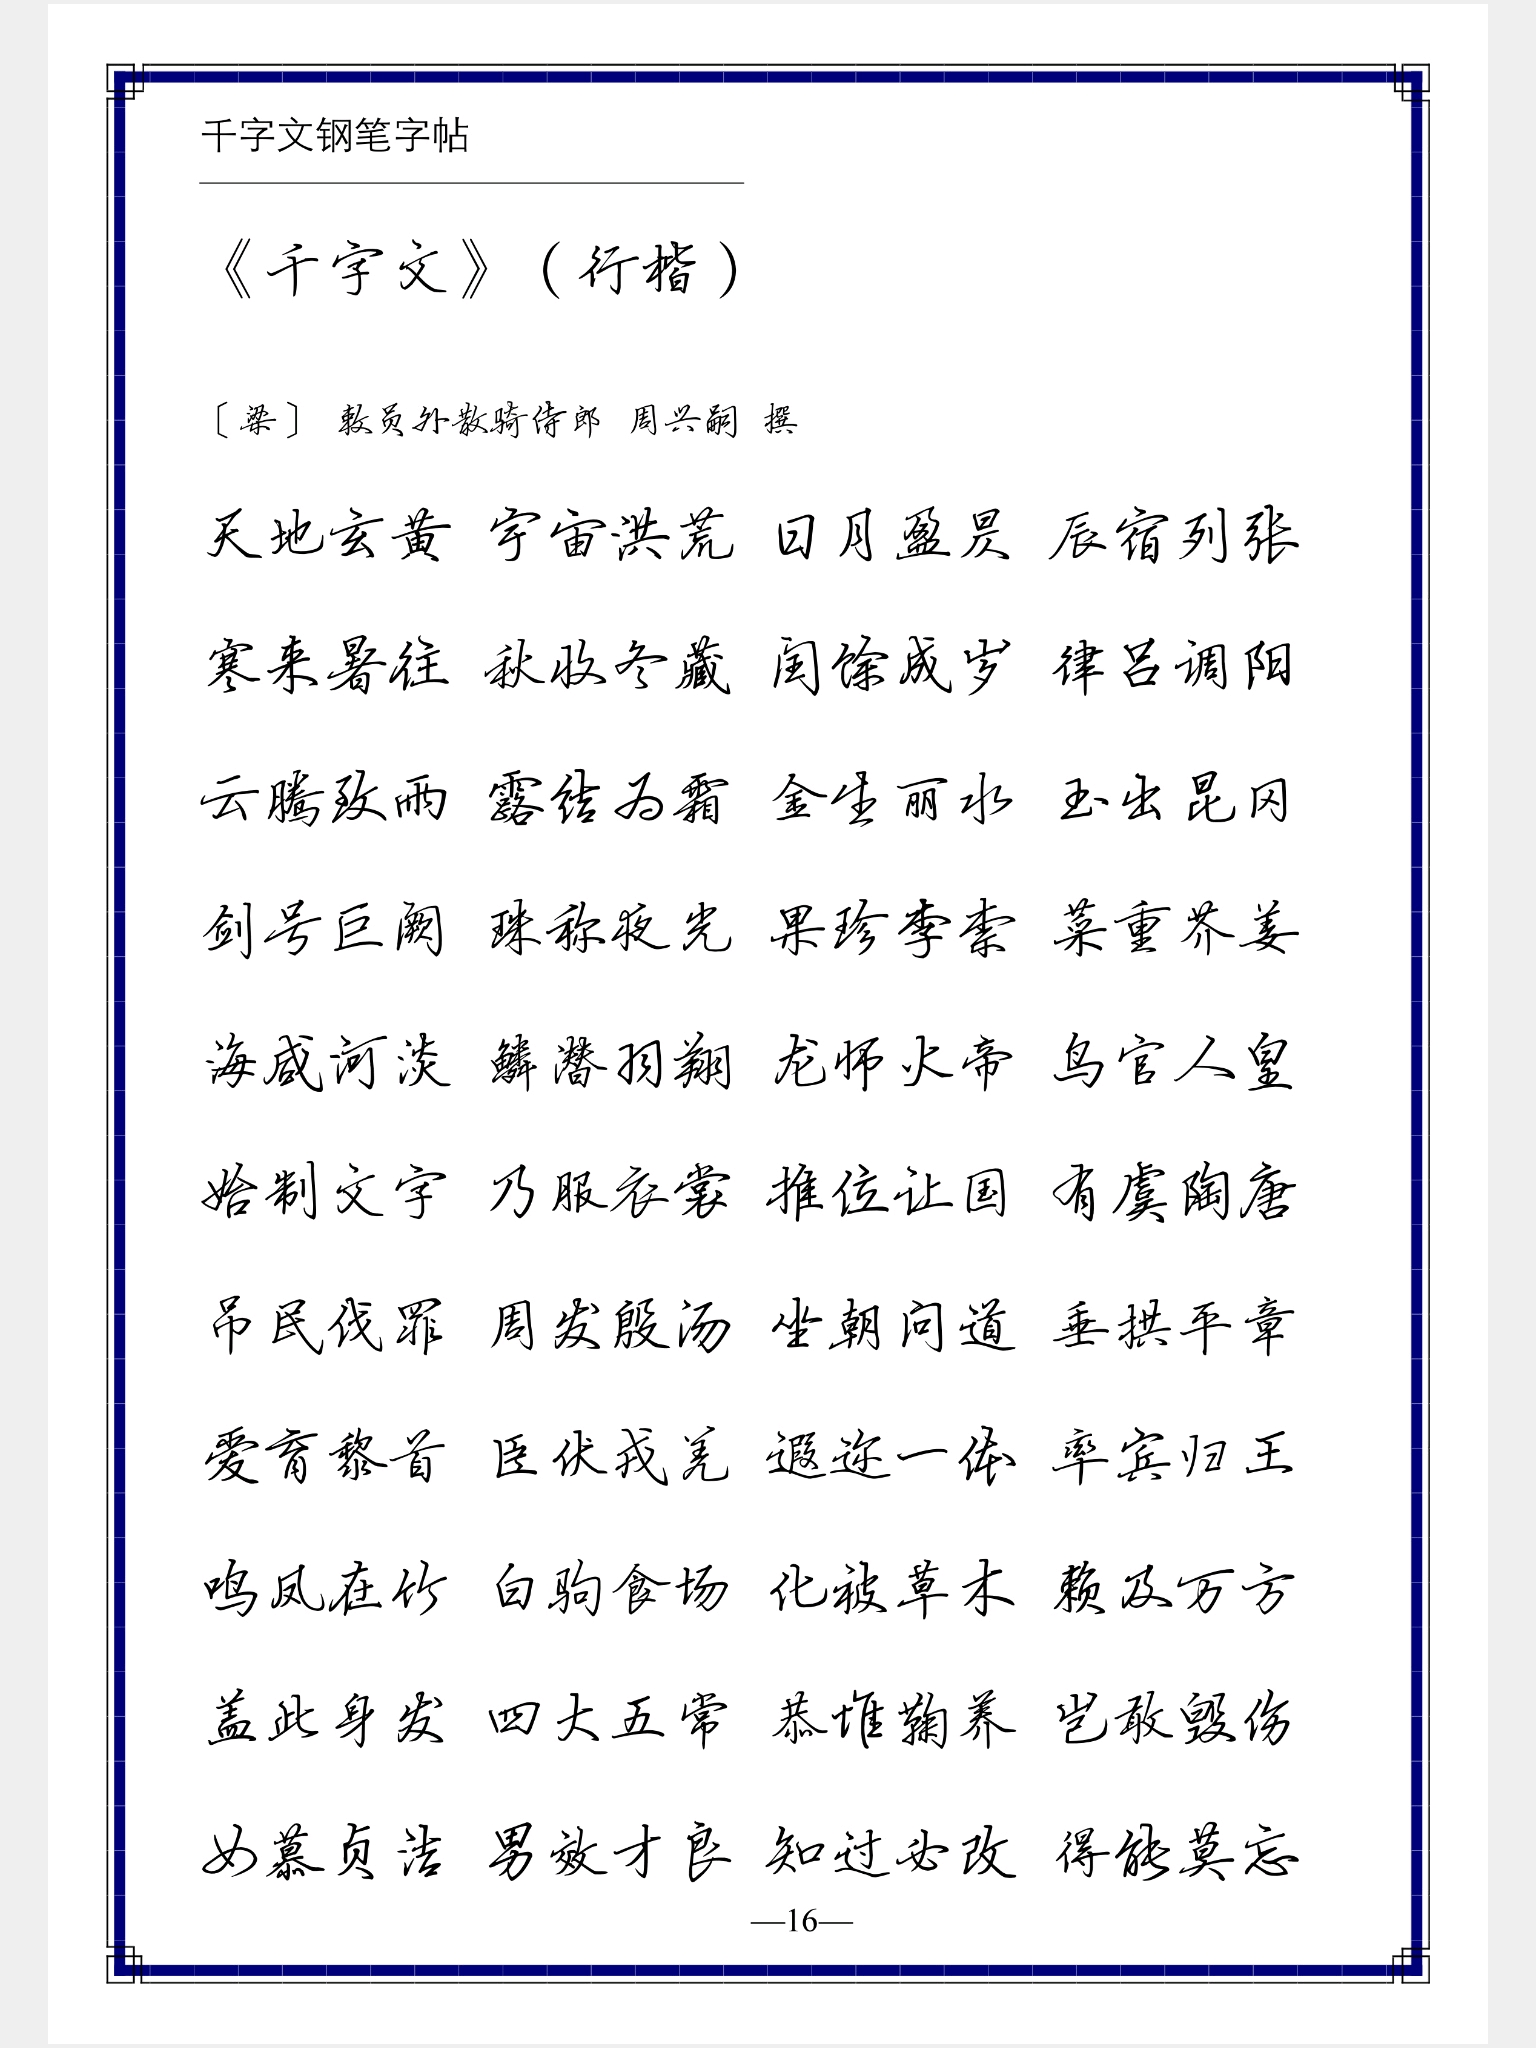 千字文钢笔字帖
《千字文》（行楷）
〔梁〕 敕员外散骑侍郎 周兴嗣 撰
天地玄黄 宇宙洪荒 日月盈昃 辰宿列张
寒来暑往 秋收冬藏 闰馀成岁 律吕调阳
云腾致雨 露结为霜 金生丽水 玉出昆冈
剑号巨阙 珠称夜光 果珍李柰 菜重芥姜
海咸河淡 鳞潜羽翔 龙师火帝 鸟官人皇
始制文字 乃服衣裳 推位让国 有虞陶唐
吊民伐罪 周发殷汤 坐朝问道 垂拱平章
爱育黎首 臣伏戎羌 遐迩一体 率宾归王
鸣凤在竹 白驹食场 化被草木 赖及万方
盖此身发 四大五常 恭惟鞠养 岂敢毁伤
女慕贞洁 男效才良 知过必改 得能莫忘
—16—